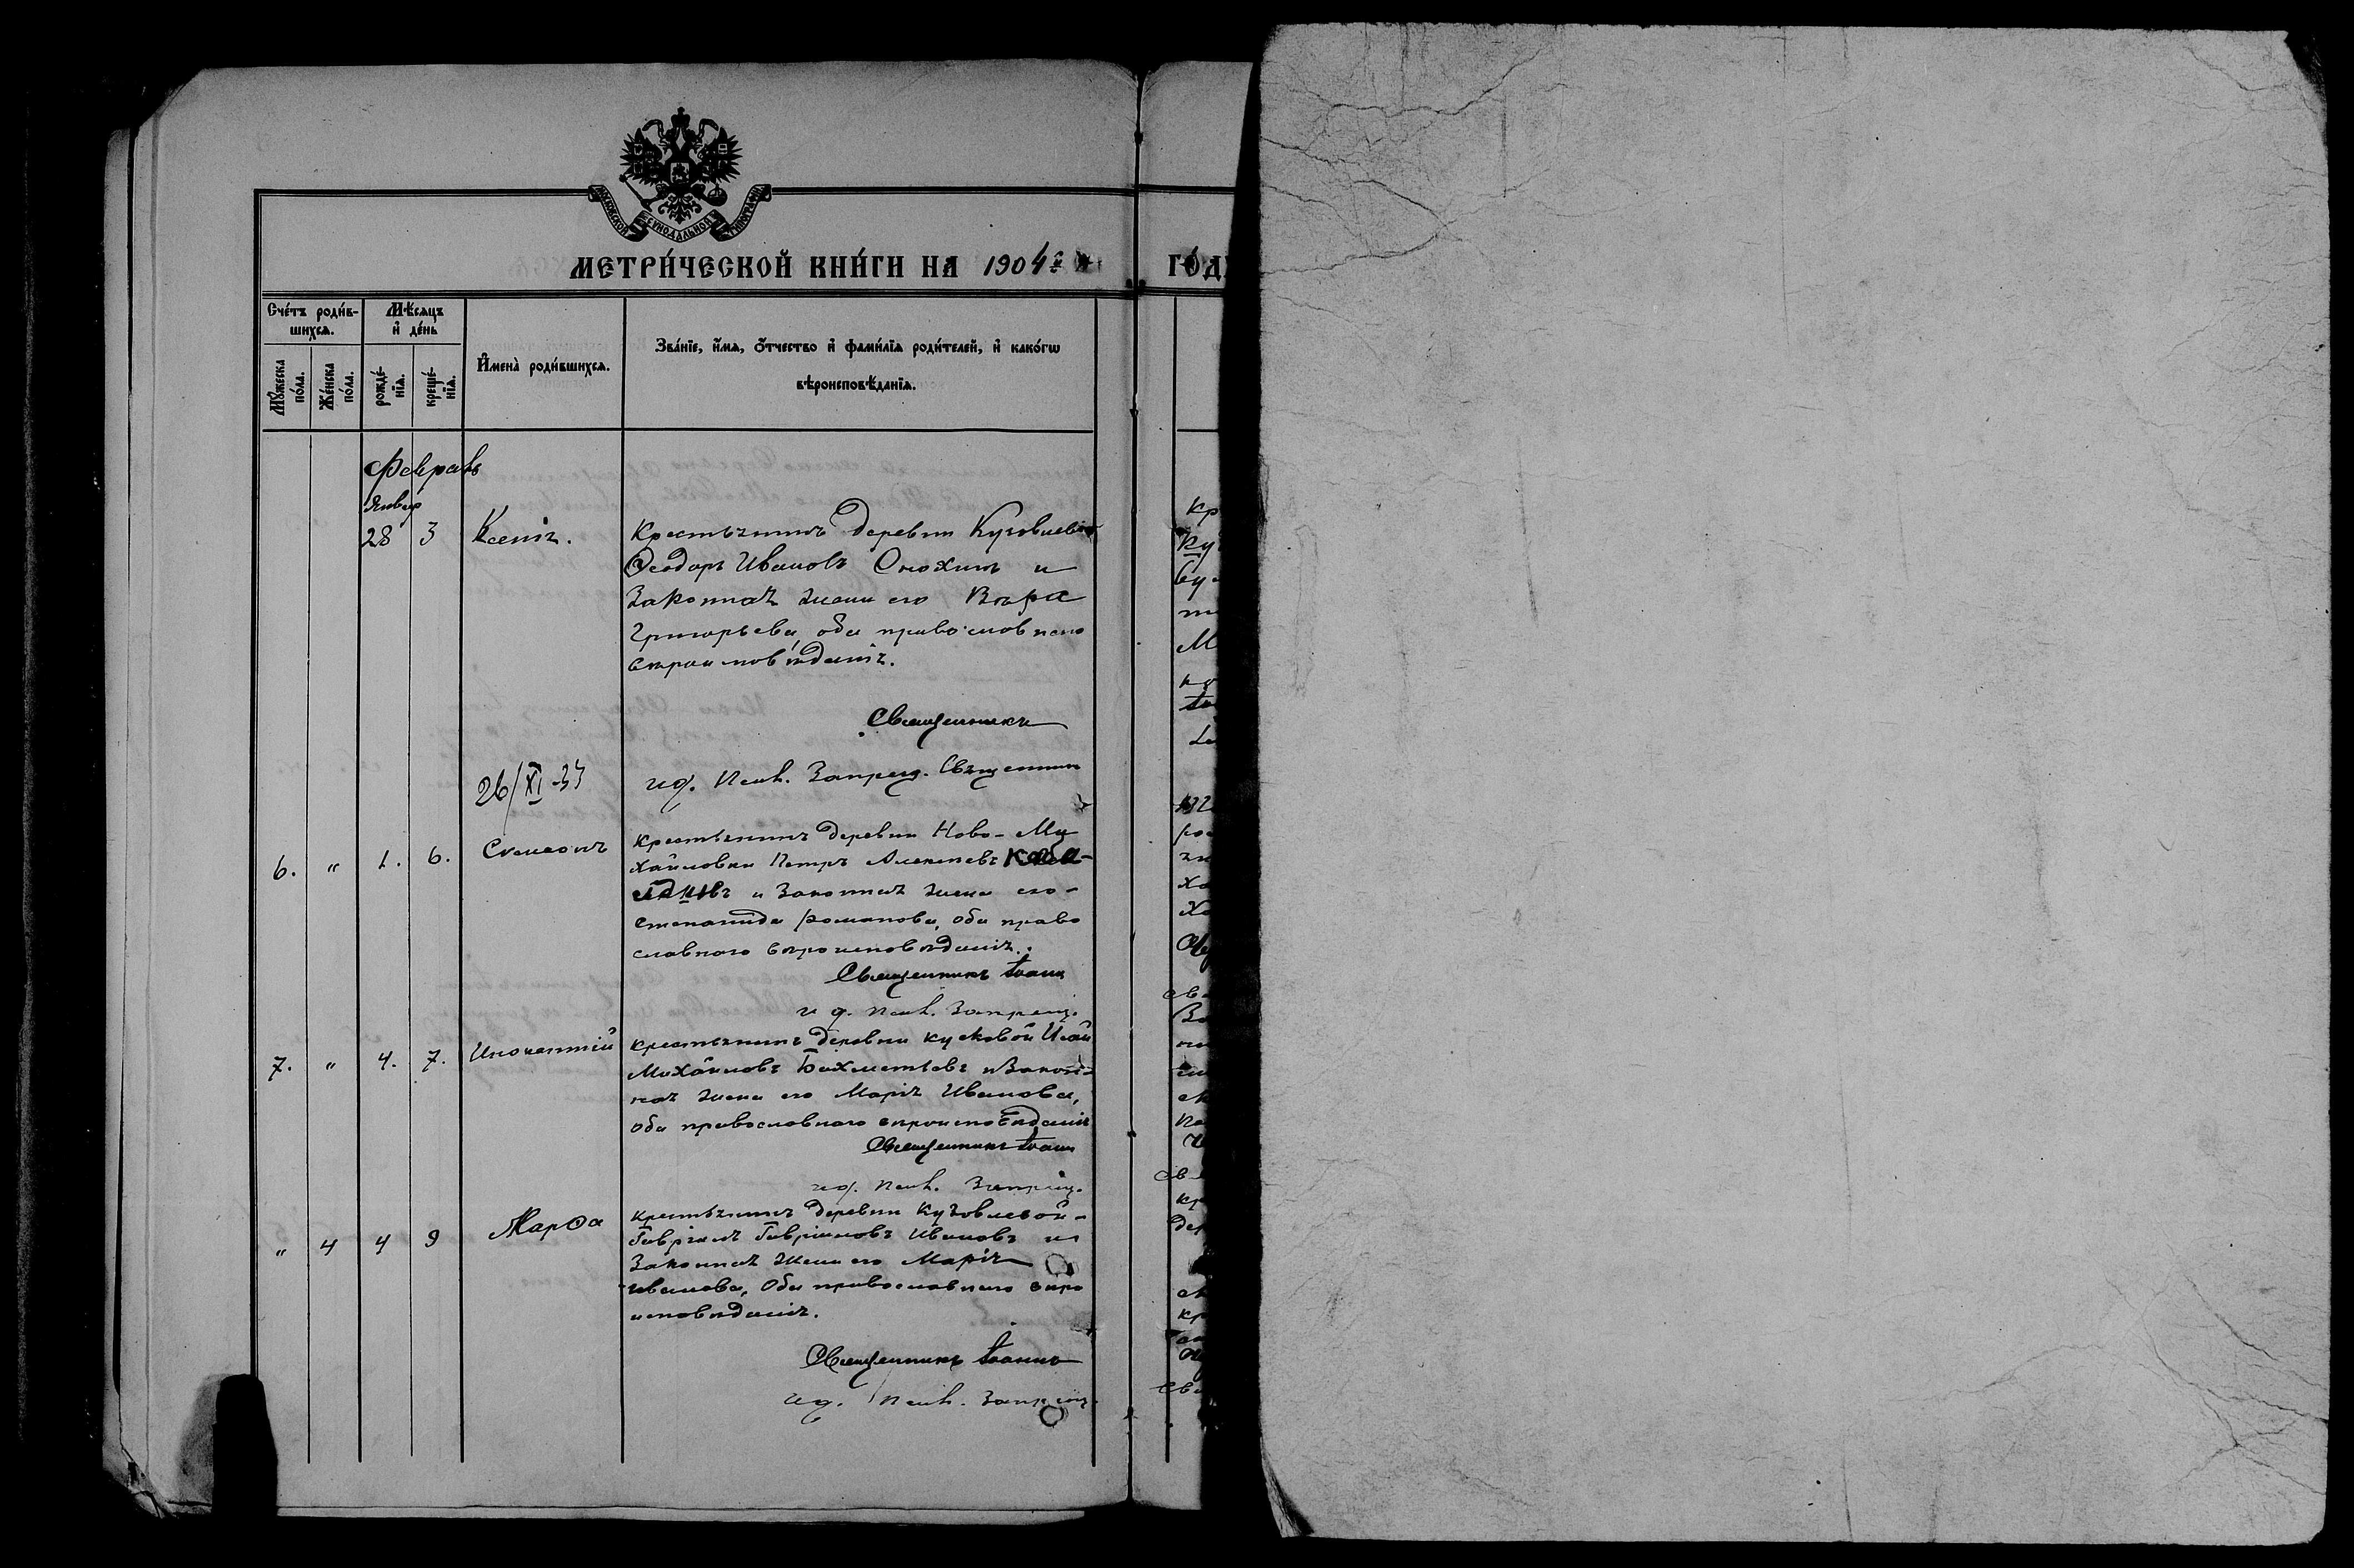 МОСКОВСКОЙ СѴНОДАЛЬНОЙ ТИПОГРАФІИ
МЕТРИ́ЧЕСКОЙ КНИ́ГИ НА 1904й
ГО́Д
Сче́тъ роди́в-
шихся.
Мѣ́сяцъ
и҆ де́нь
Мꙋ́жеска
по́ла.
Же́нска
по́ла.
рожде́-
нїѧ.
креще́-
нїѧ.
И҆мена̀ роди́вшихсѧ.
Зва́нїе, и҆́мѧ, ѻ҆́тчество и҆ фами́лїѧ роди́телей, и҆ како́гѡ
вѣроисповѣ́данїѧ.
Февраль
Январ
28 3 Ксенія.
Крестьянинъ деревни Кузовлевой
Ѳеодоръ Ивановъ Онохинъ и
Законная жена его Вѣра
Григорьева, оба православнаго
вѣроисповѣданія.
Священникъ
26/XI-33
и д. Псал. Запрещ. Священникъ
6. " 1. 6. Симеонъ
Крестьянинъ деревни Ново-Ми
хайловки Петръ Алексѣевъ
и Законная жена его
Степанида Романова, оба право
славнаго вѣроисповѣданія.
Священникъ Іоанн
и д. Псал. Запрещ.
7. " 4. 7. Инокентій
Крестьянинъ деревни Кусковой
Михайловъ Бахметьевъ и Закон-
ная жена его Марія Иванова,
оба православнаго вѣроисповѣданія
Священникъ Іоанн
и д. Псал. Запрещ.
" 4 4 9 Марѳа
Крестьянинъ деревни Кузовлевой
Гавріилъ Гавріиловъ Ивановъ и
Законная жена его Марія
Иванова, Оба православнаго вѣро
исповѣданія.
Священникъ Іоаннъ
и д. Псал. Запрещ.